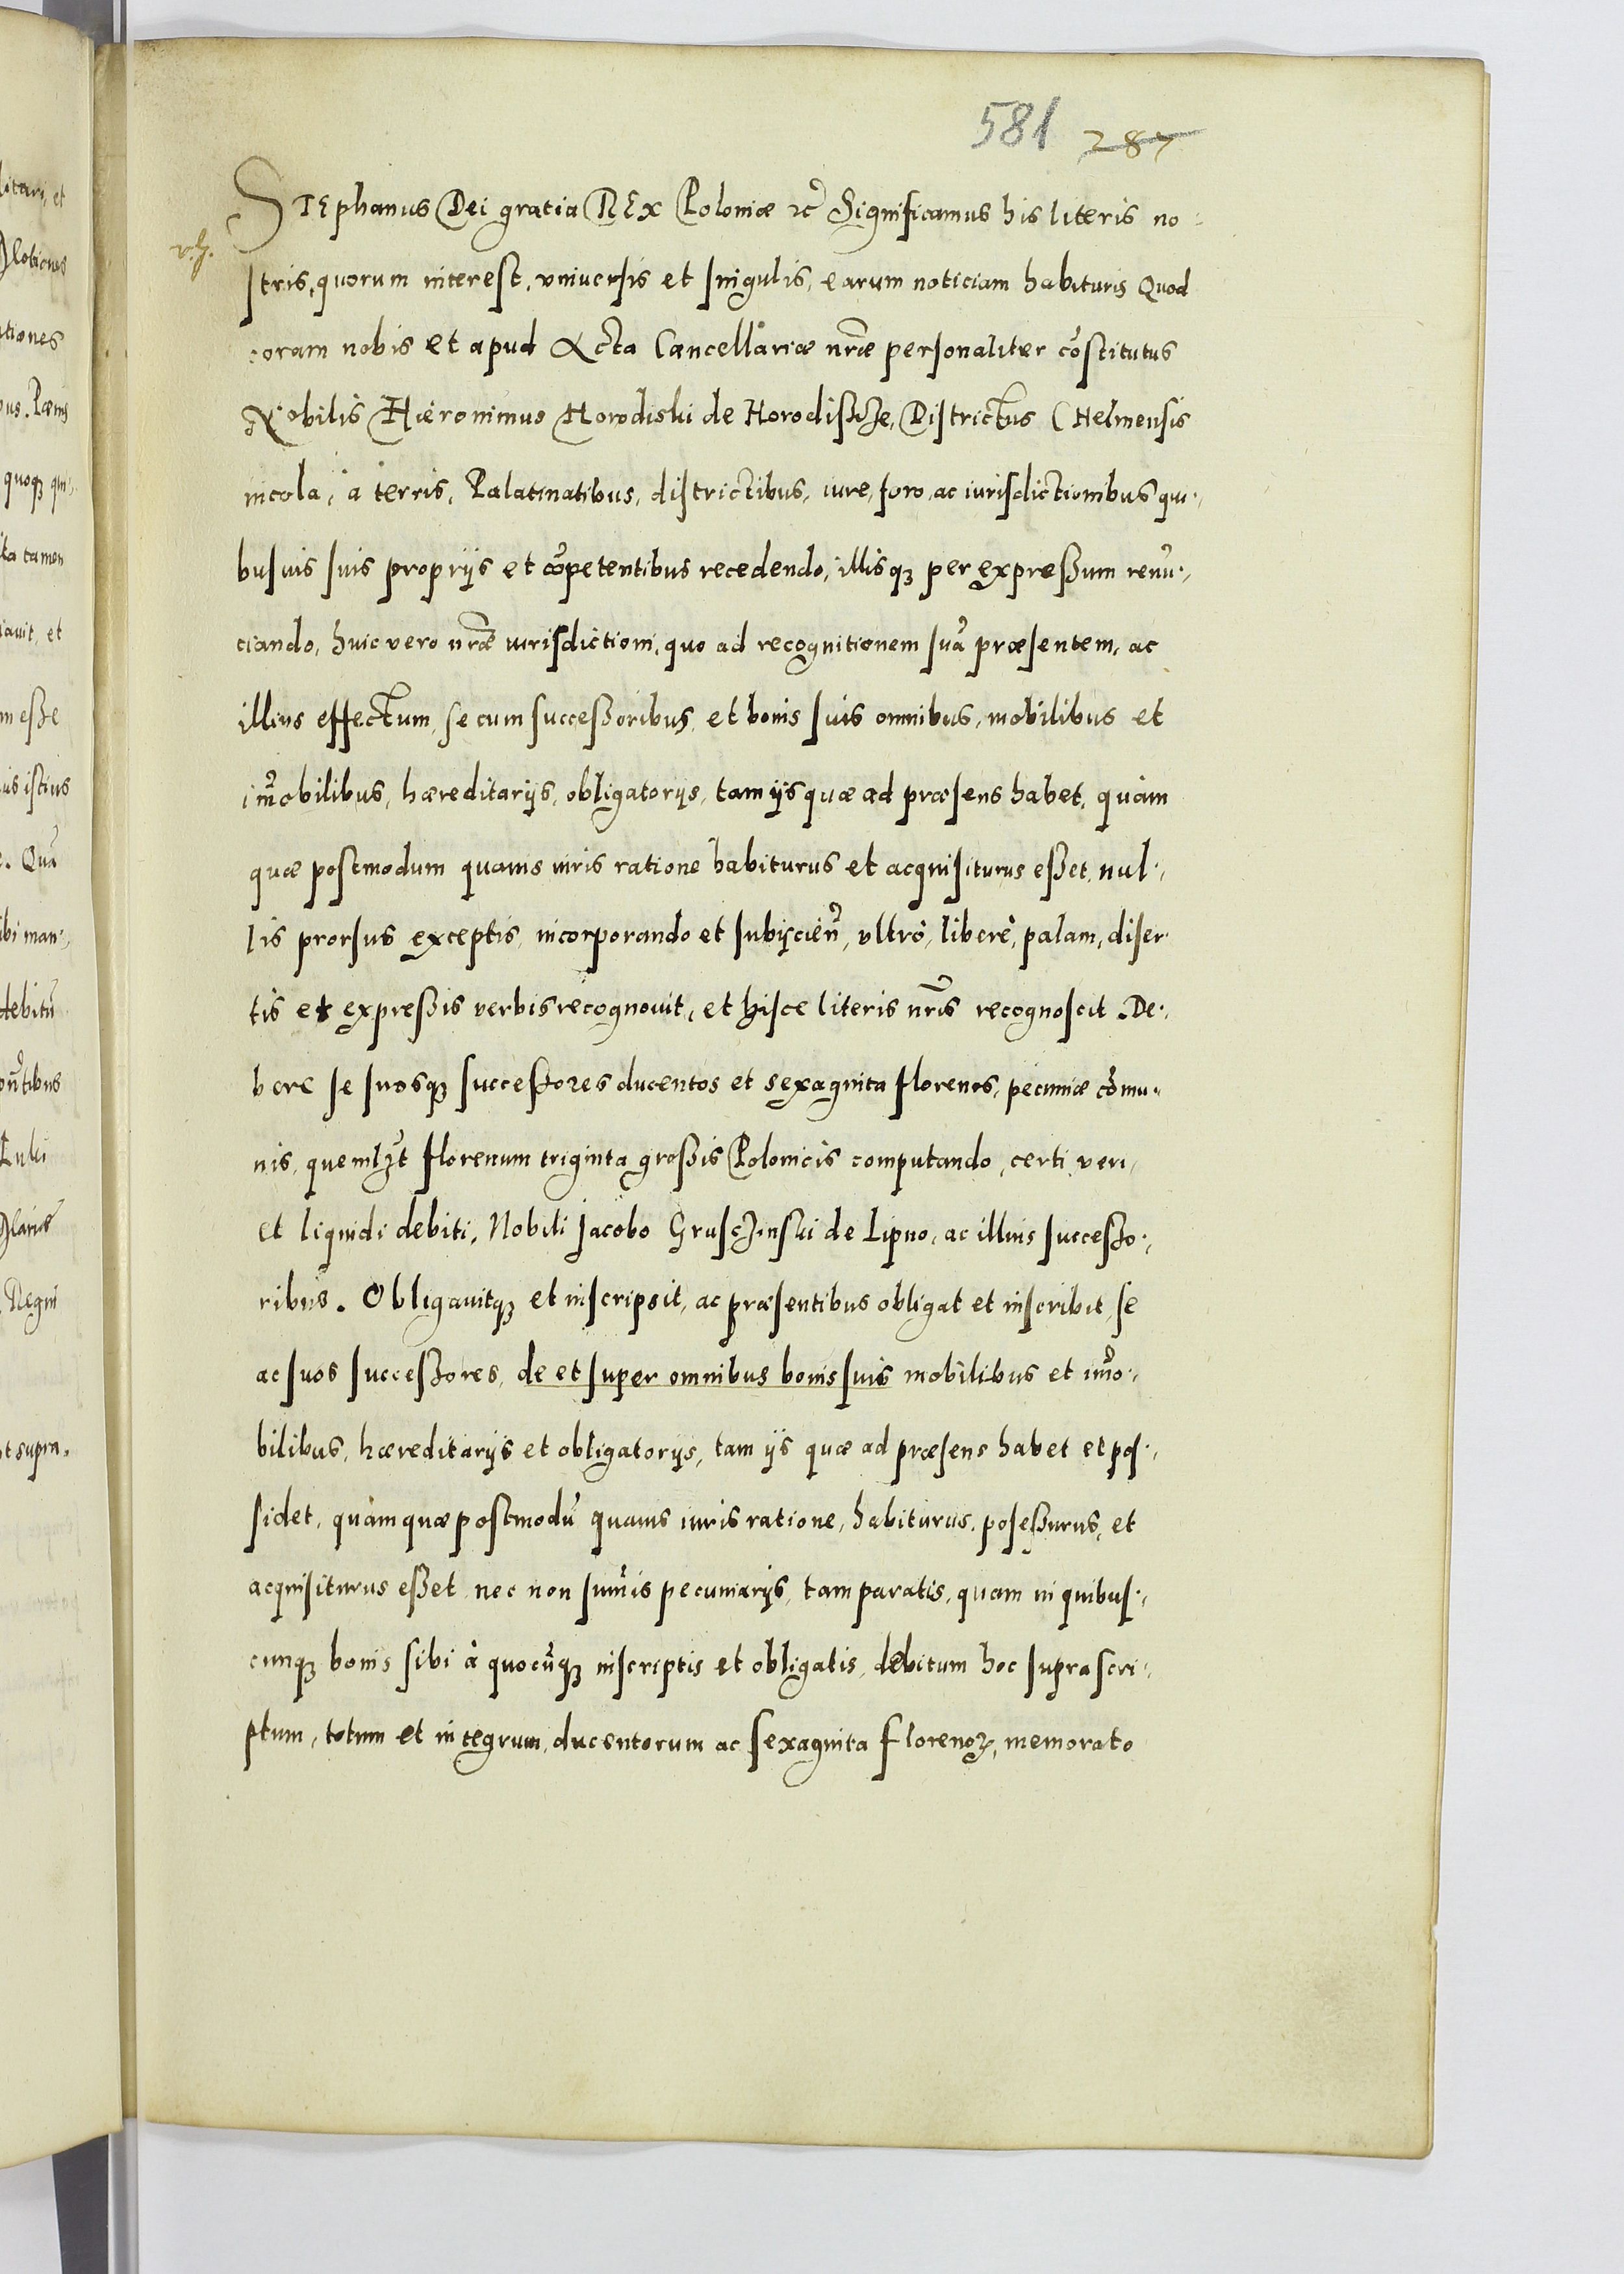 581 287
STEphanus Dei gratia REx Poloniæ &c̃ Significamus his literis no-
stris, quorum interest, vniuersis et singulis, earum noticiam habituris Quod
coram nobis et apud Acta Cancellariæ nr̃æ personaliter cõstitutus
Nobilis Hieronimus Horodiski de Horodiszcze, Districtus Chelmensis
incola, à terris, Palatinatibus, districtibus, iure, foro, ac iurisdictionibus qui-
busuis suis proprijs et cõpetentibus recedendo, illisq3 per expressum renũ-
ciando, huic vero nr̃æ iurisdictioni, quo ad recognitionem suã præsentem, ac
illius effectum, se cum successoribus, et bonis suis omnibus, mobilibus et
im̃obilibus, hæreditarijs, obligatorijs, tam ijs quæ ad præsens habet, quàm
quæ postmodum quouis iuris ratione habiturus et acquisiturus esset, nul-
lis prorsus exceptis, incorporando et subijcien̄, vltrò, liberè, palam, diser-
tis et expressis verbis recognouit, et hisce literis nr̃is recognoscit. De-
bere se suosq3 successores ducentos et sexaginta florenos, pecuniæ cõmu-
nis, quemlzt florenum triginta grossis Polonicis computando, certi veri,
et liquidi debiti, Nobili Jacobo Grusczinski de Lipno, ac illius successo-
ribus. Obligauitq3 et inscripsit, ac præsentibus obligat et inscribit, se
ac suos successores, de et super omnibus bonis suis mobilibus et im̃o-
bilibus, hæreditarijs et obligatorijs, tam ijs quæ ad præsens habet et pos-
sidet, quàm quæ postmodũ quouis iuris ratione, habiturus, posessurus, et
acquisiturus esset nec non sum̃is pecuniarijs, tam paratis, quam in quibus-
cunq3 bonis sibi à quocũq3 inscriptis et obligatis, debitum hoc suprascri-
ptum, totum et integrum, ducentorum ac sexaginta florenoꝝ, memorato